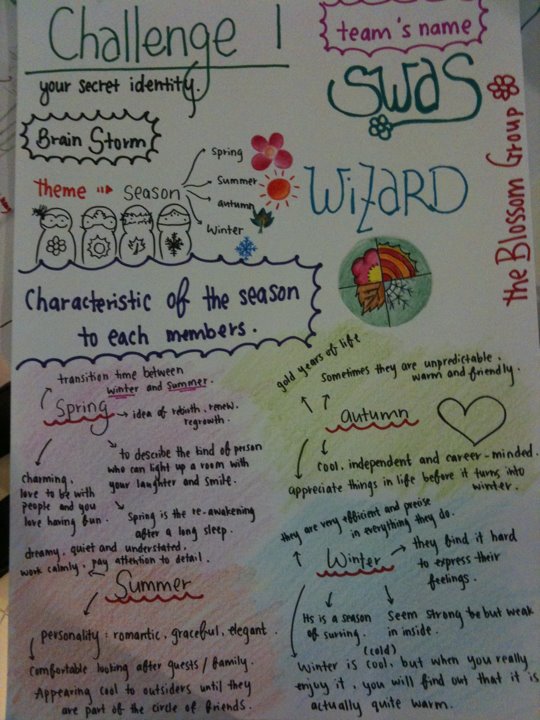 Challenge 1
your secret identity.
team's name
SWAS
WiZARD
the Blossom Group
Brain Storm
theme
Season
Spring
Summer
autumn
Winter
Characteristic of the season
to each members.
transition time between
winter and summer.
Spring
idea of rebirth, renew,
regrowth.
to describe the kind of person
who can light up a room with
your laughter and smile.
charming,
love to be with
people and you
love having fun.
Spring is the re-awakening
after a long sleep.
dreamy, quiet and understated,
work calmly, pay attention to detail.
Summer
personality : romantic, graceful, elegant.
Comfortable looking after guests / family.
Appearing cool to outsiders until they
are part of the circle of friends.
gold years of life
Sometimes they are unpredictable,
warm and friendly.
autumn
cool, independent and career-minded.
appreciate things in life before it turns into
winter.
they are very efficient and precise
in everything they do.
Winter
they find it hard
to express their
feelings.
Its is a season
of surring.
Seem strong be but weak
in inside.
(cold)
Winter is cool, but when you really
enjoy it, you will find out that it is
actually quite warm.